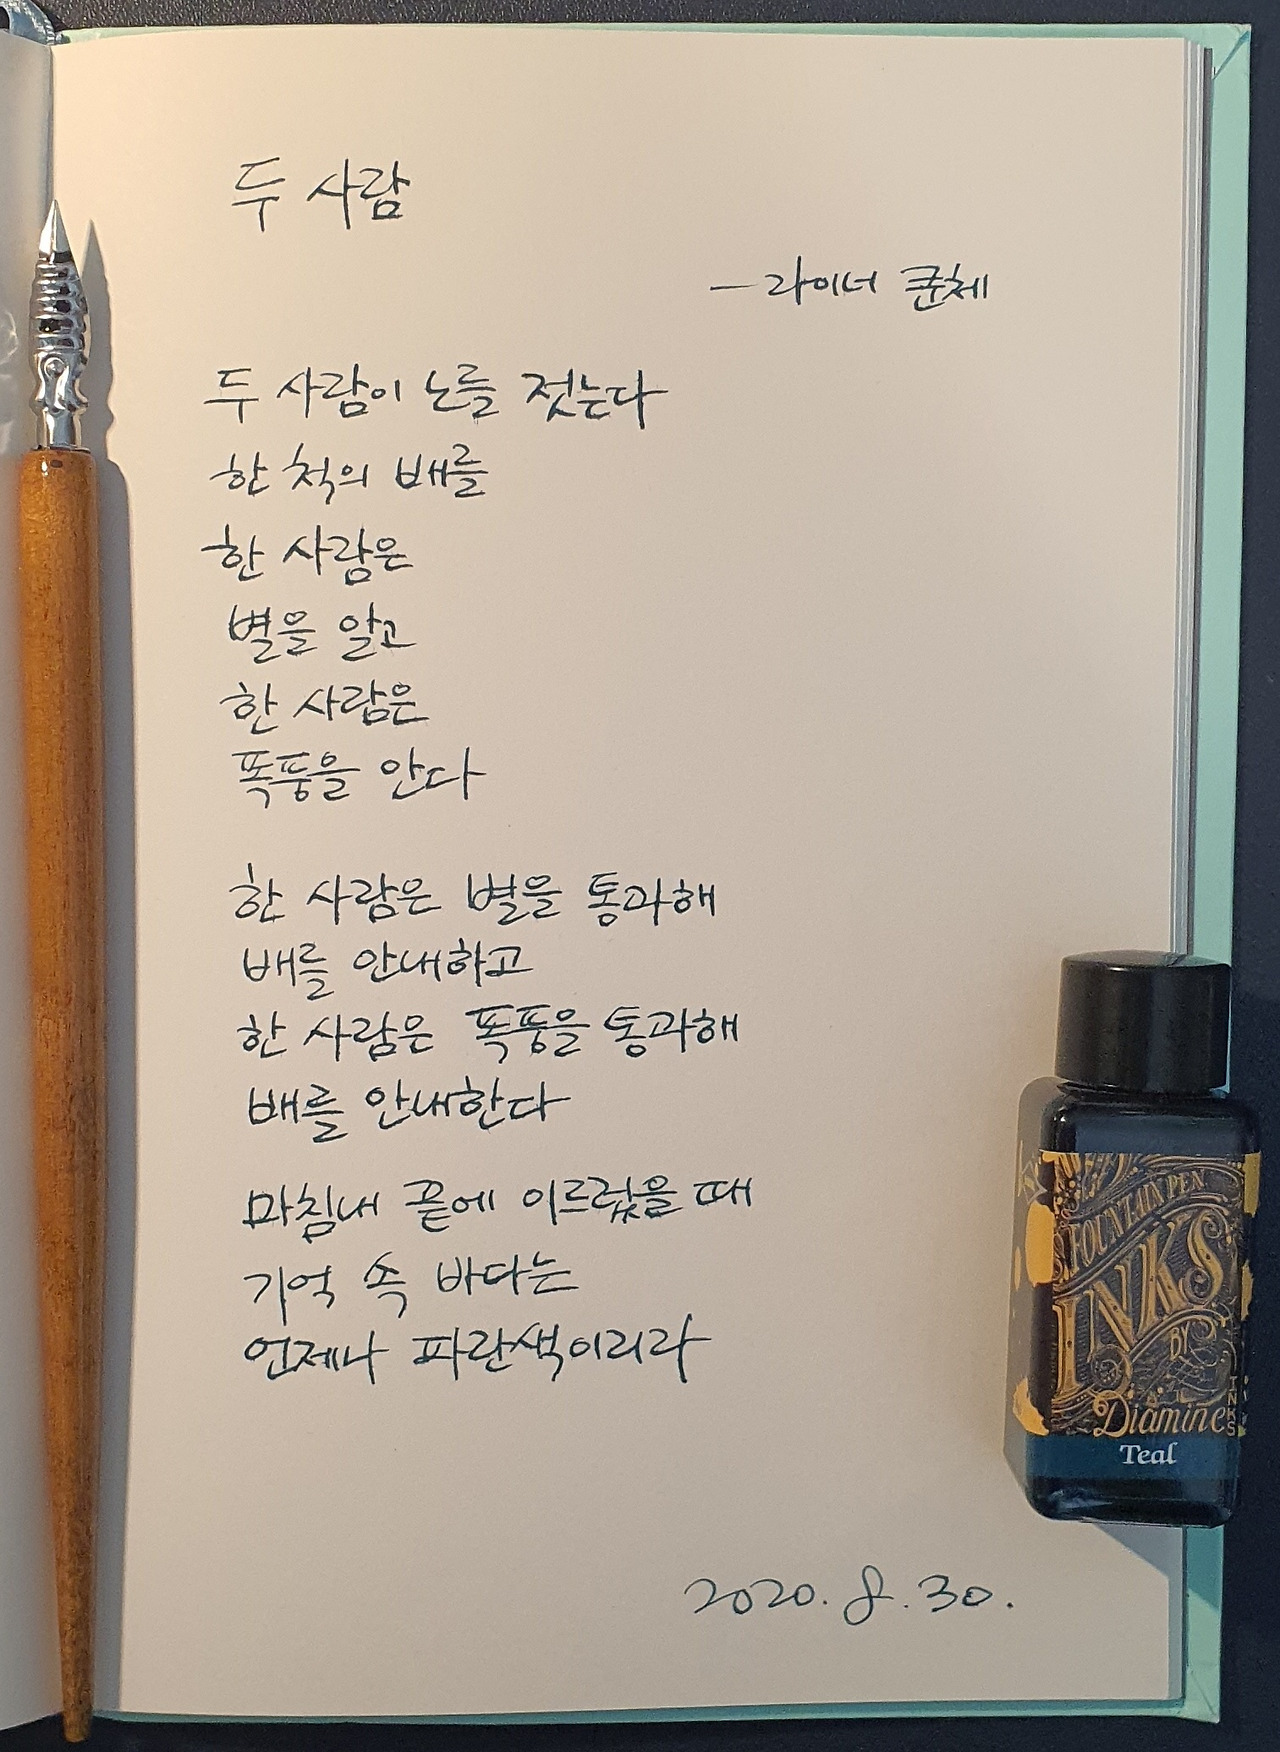 두 사람
— 라이너 쿤체
두 사람이 노를 젓는다
한 척의 배를
한 사람은
별을 알고
한 사람은
폭풍을 안다
한 사람은 별을 통과해
배를 안내하고
한 사람은 폭풍을 통과해
배를 안내한다
마침내 끝에 이르렀을 때
기억 속 바다는
언제나 파란색이리라
FOUNTAIN PEN
INKS
BY
Diamine
INKS
Teal
2020. 8. 30.